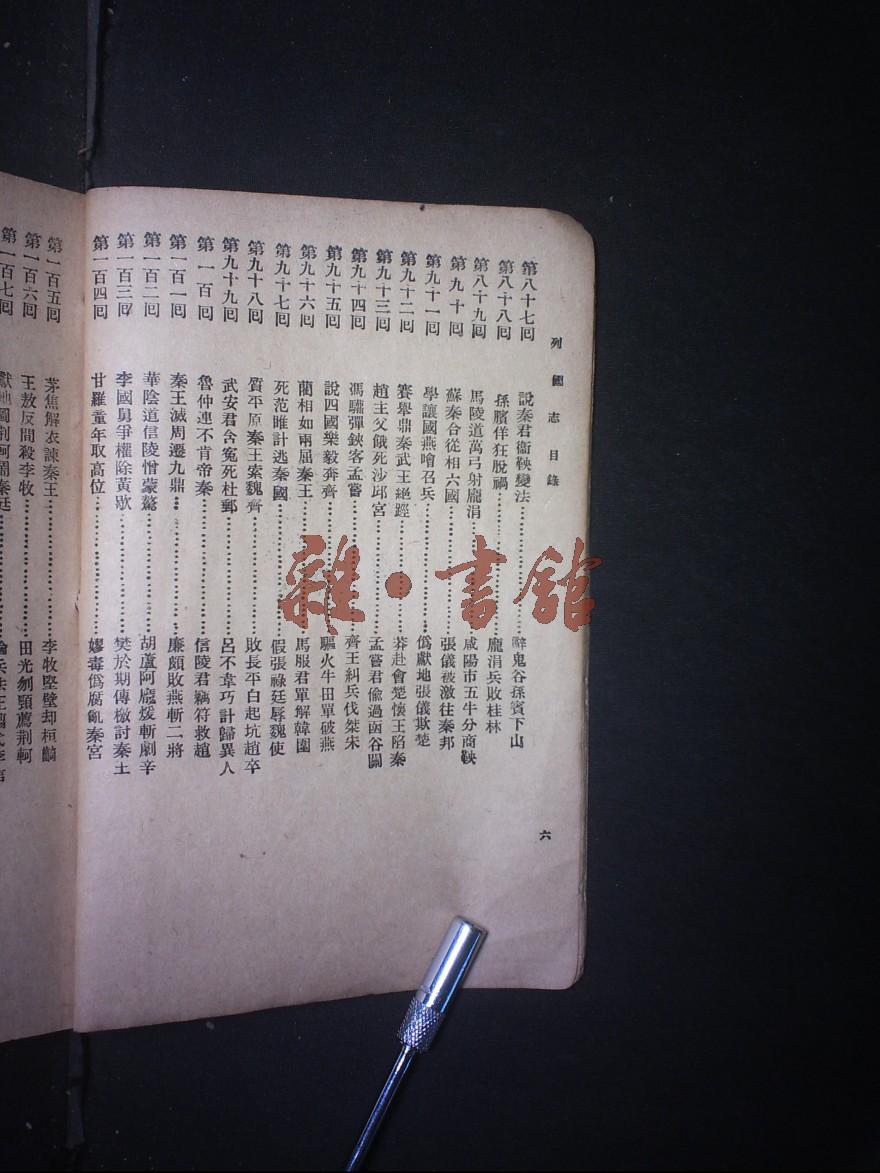 列國志目錄
六
第八十七囘 說秦君衞鞅變法 辭鬼谷孫賓下山
第八十八囘 孫臏佯狂脫禍 龐涓兵敗桂林
第八十九囘 馬陵道萬弓射龐涓 咸陽市五牛分商鞅
第九十囘 蘇秦合從相六國 張儀被激往秦邦
第九十一囘 學讓國燕噲召兵 僞獻地張儀欺楚
第九十二囘 賽舉鼎秦武王絕脛 莽赴會楚懷王陷秦
第九十三囘 趙主父餓死沙邱宮 孟嘗君偷過函谷關
第九十四囘 馮驩彈鋏客孟嘗 齊王糾兵伐桀宋
第九十五囘 說四國樂毅奔齊 驅火牛田單破燕
第九十六囘 藺相如兩屈秦王 馬服君單解韓圍
第九十七囘 死范雎計逃秦國 假張祿廷辱魏使
第九十八囘 質平原秦王索魏齊 敗長平白起坑趙卒
第九十九囘 武安君含冤死杜郵 呂不韋巧計歸異人
第一百囘 魯仲連不肯帝秦 信陵君竊符救趙
第一百一囘 秦王滅周遷九鼎 廉頗敗燕斬二將
第一百二囘 華陰道信陵憎蒙驁 胡盧阿龐煖斬劇辛
第一百三囘 李國舅爭權除黃歇 樊於期傳檄討秦王
第一百四囘 甘羅童年取高位 嫪毐僞腐亂秦宮
第一百五囘 茅焦解衣諫秦王 李牧堅壁却桓齮
第一百六囘 王敖反間殺李牧 田光刎頸薦荆軻
第一百七囘 獻地圖荆軻鬧秦廷
雜·書館